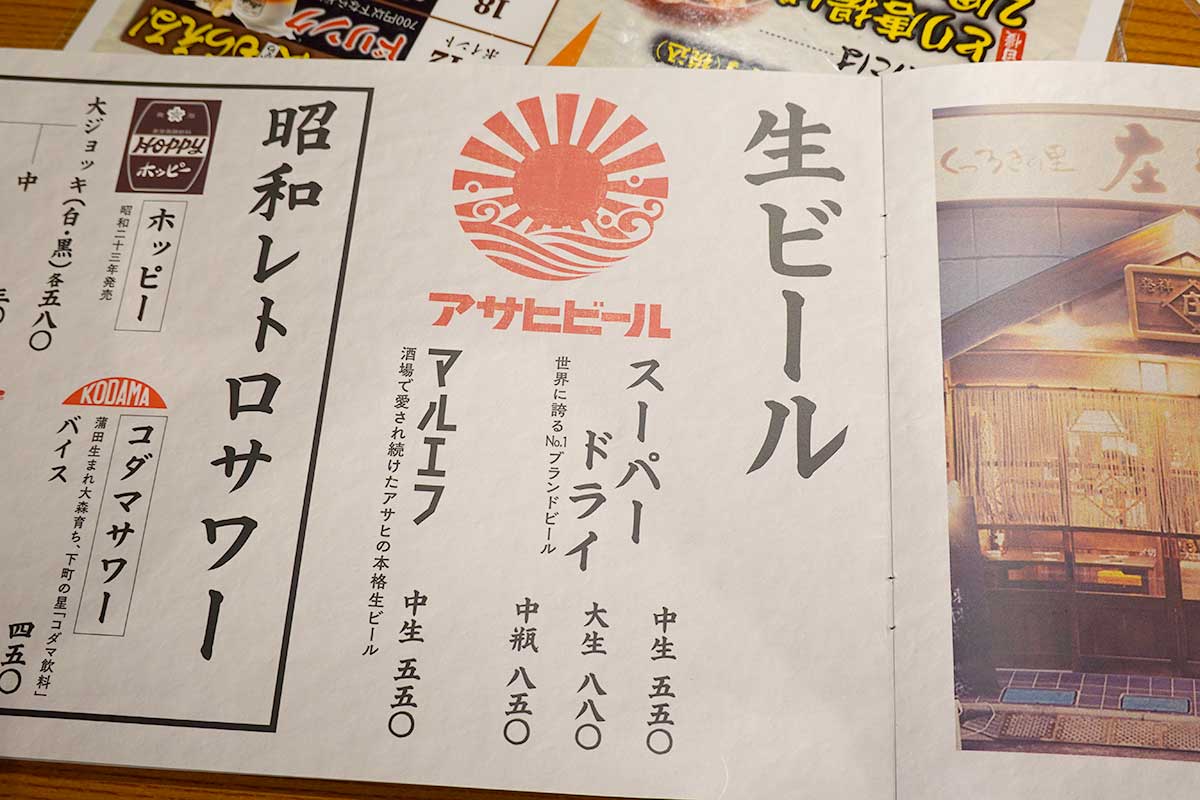 生ビール
アサヒビール
スーパー
ドライ
世界に誇るNo.1ブランドビール
中生 五五〇
大生 八八〇
中瓶 八五〇
マルエフ
酒場で愛され続けたアサヒの本格生ビール
中生 五五〇
昭和レトロサワー
HOPPY
ホッピー
ホッピー
昭和二十三年発売
大ジョッキ(白・黒)各五八〇
中
KODAMA
コダマサワー
蒲田生まれ大森育ち、下町の星「コダマ飲料」
バイス
四五〇
くつろぎの里
庄
とり唐揚げ
2個
(税込)
ドリンク
700円以下
もらえる!
18
12
ポイント